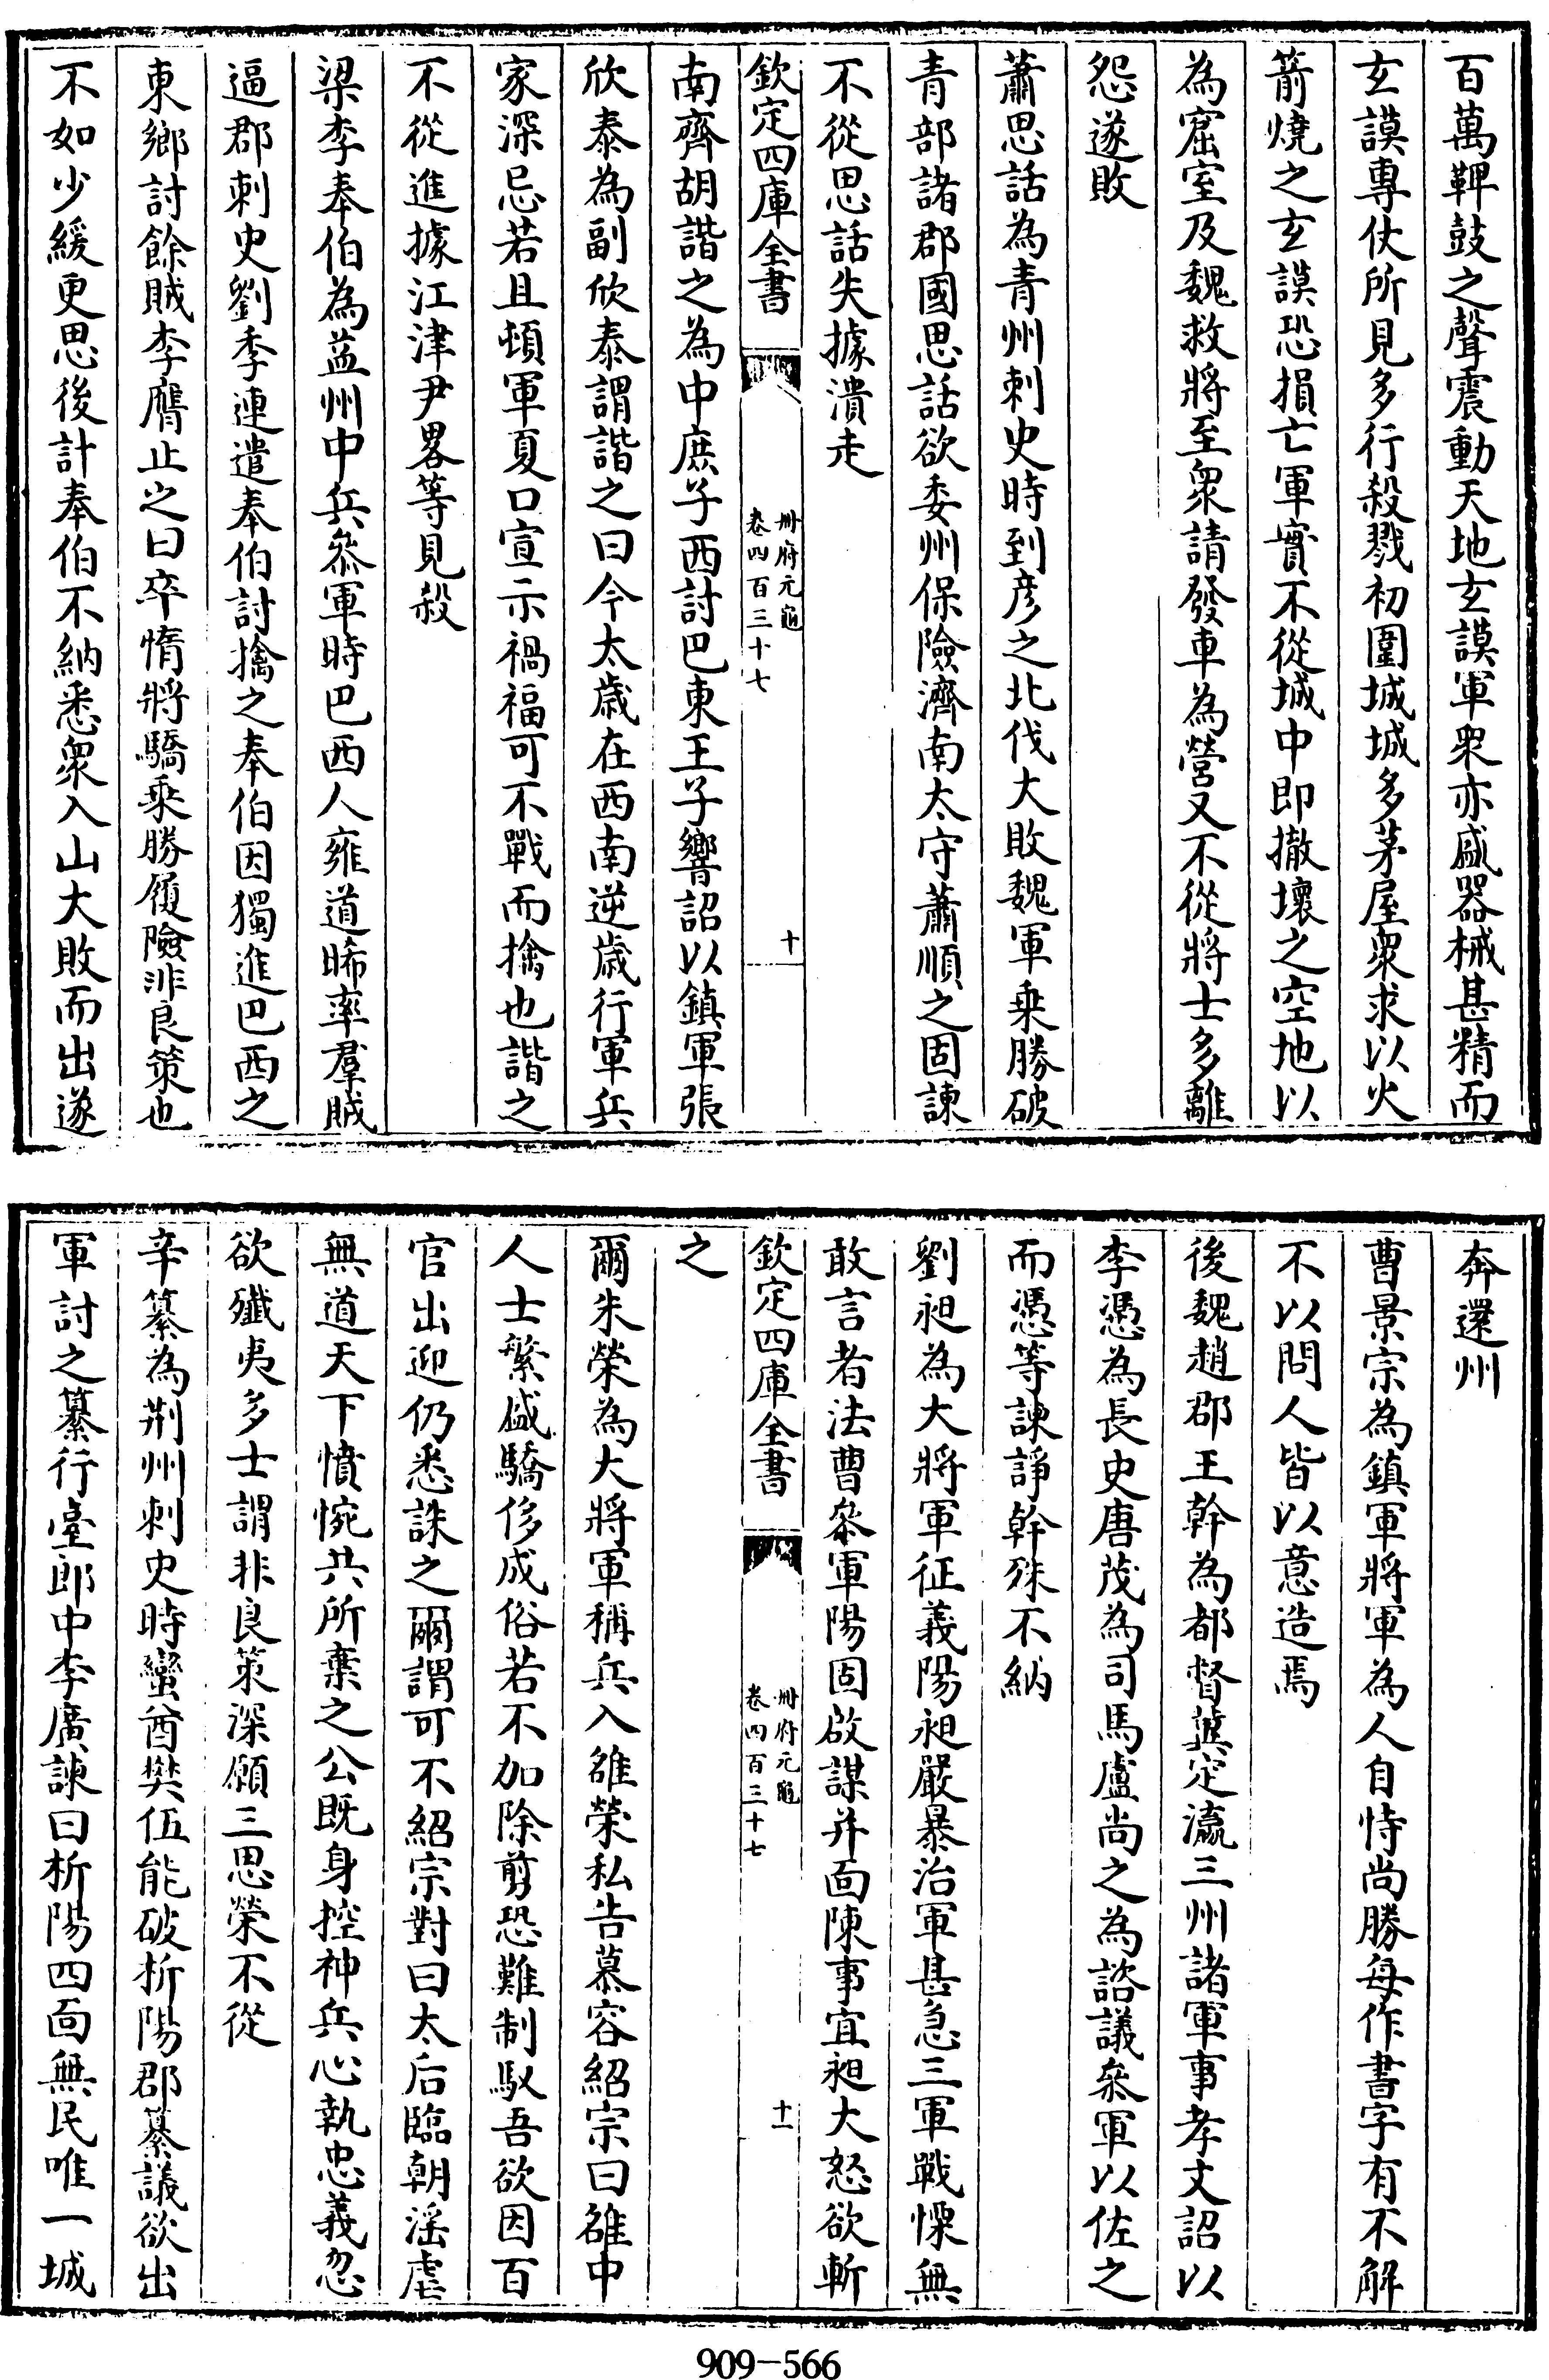 百萬鞞鼓之聲震動天地玄謨軍衆亦盛器械甚精而
玄謨專仗所見多行殺戮初圍城城多茅屋衆求以火
箭燒之玄謨恐損亡軍實不從城中即撤壞之空地以
為窟室及魏救將至衆請發車為營又不從將士多離
怨遂敗
蕭思話為青州刺史時到彦之北伐大敗魏軍乗勝破
青部諸郡國思話欲委州保險濟南太守蕭順之固諫
不從思話失據潰走
欽定四庫全書
冊府元龜
卷四百三十七
十
南齊胡諧之為中庶子西討巴東王子響詔以鎮軍張
欣泰為副欣泰謂諧之曰今太歲在西南逆歲行軍兵
家深忌若且頓軍夏口宣示禍福可不戰而擒也諧之
不從進據江津尹畧等見殺
梁李奉伯為益州中兵叅軍時巴西人雍道晞率羣賊
逼郡刺史劉季連遣奉伯討擒之奉伯因獨進巴西之
東鄉討餘賊李膺止之曰卒惰將驕乗勝履險非良策也
不如少緩更思後計奉伯不納悉衆入山大敗而出遂
奔還州
曹景宗為鎮軍將軍為人自恃尚勝每作書字有不解
不以問人皆以意造焉
後魏趙郡王幹為都督冀定瀛三州諸軍事孝文詔以
李憑為長史唐茂為司馬盧尚之為諮議叅軍以佐之
而憑等諫諍幹殊不納
劉昶為大將軍征義陽昶嚴暴治軍甚急三軍戰慄無
敢言者法曹叅軍陽固啟謀并面陳事宜昶大怒欲斬
欽定四庫全書
冊府元龜
卷四百三十七
十一
之
爾朱榮為大將軍稱兵入雒榮私告慕容紹宗曰雒中
人士繁盛驕侈成俗若不加除剪恐難制馭吾欲因百
官出迎仍悉誅之爾謂可不紹宗對曰太后臨朝淫虐
無道天下憤惋共所棄之公既身控神兵心執忠義忽
欲殲夷多士謂非良策深願三思榮不從
辛纂為荆州刺史時蠻酋樊伍能破析陽郡纂議欲出
軍討之纂行臺郎中李廣諫曰析陽四面無民唯一城
909-566